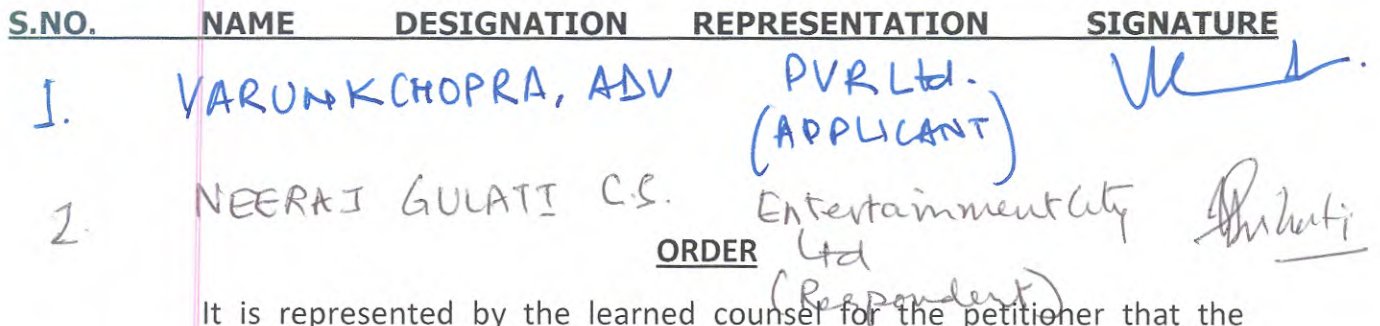 S.NO. NAME DESIGNATION REPRESENTATION SIGNATURE
1. VARUN K CHOPRA, ADV PVR Ltd.
(APPLICANT)
2. NEERAJ GULATI C.S. Entertainment City
Ltd
(Respondent)
ORDER
It is represented by the learned counsel for the petitioner that the